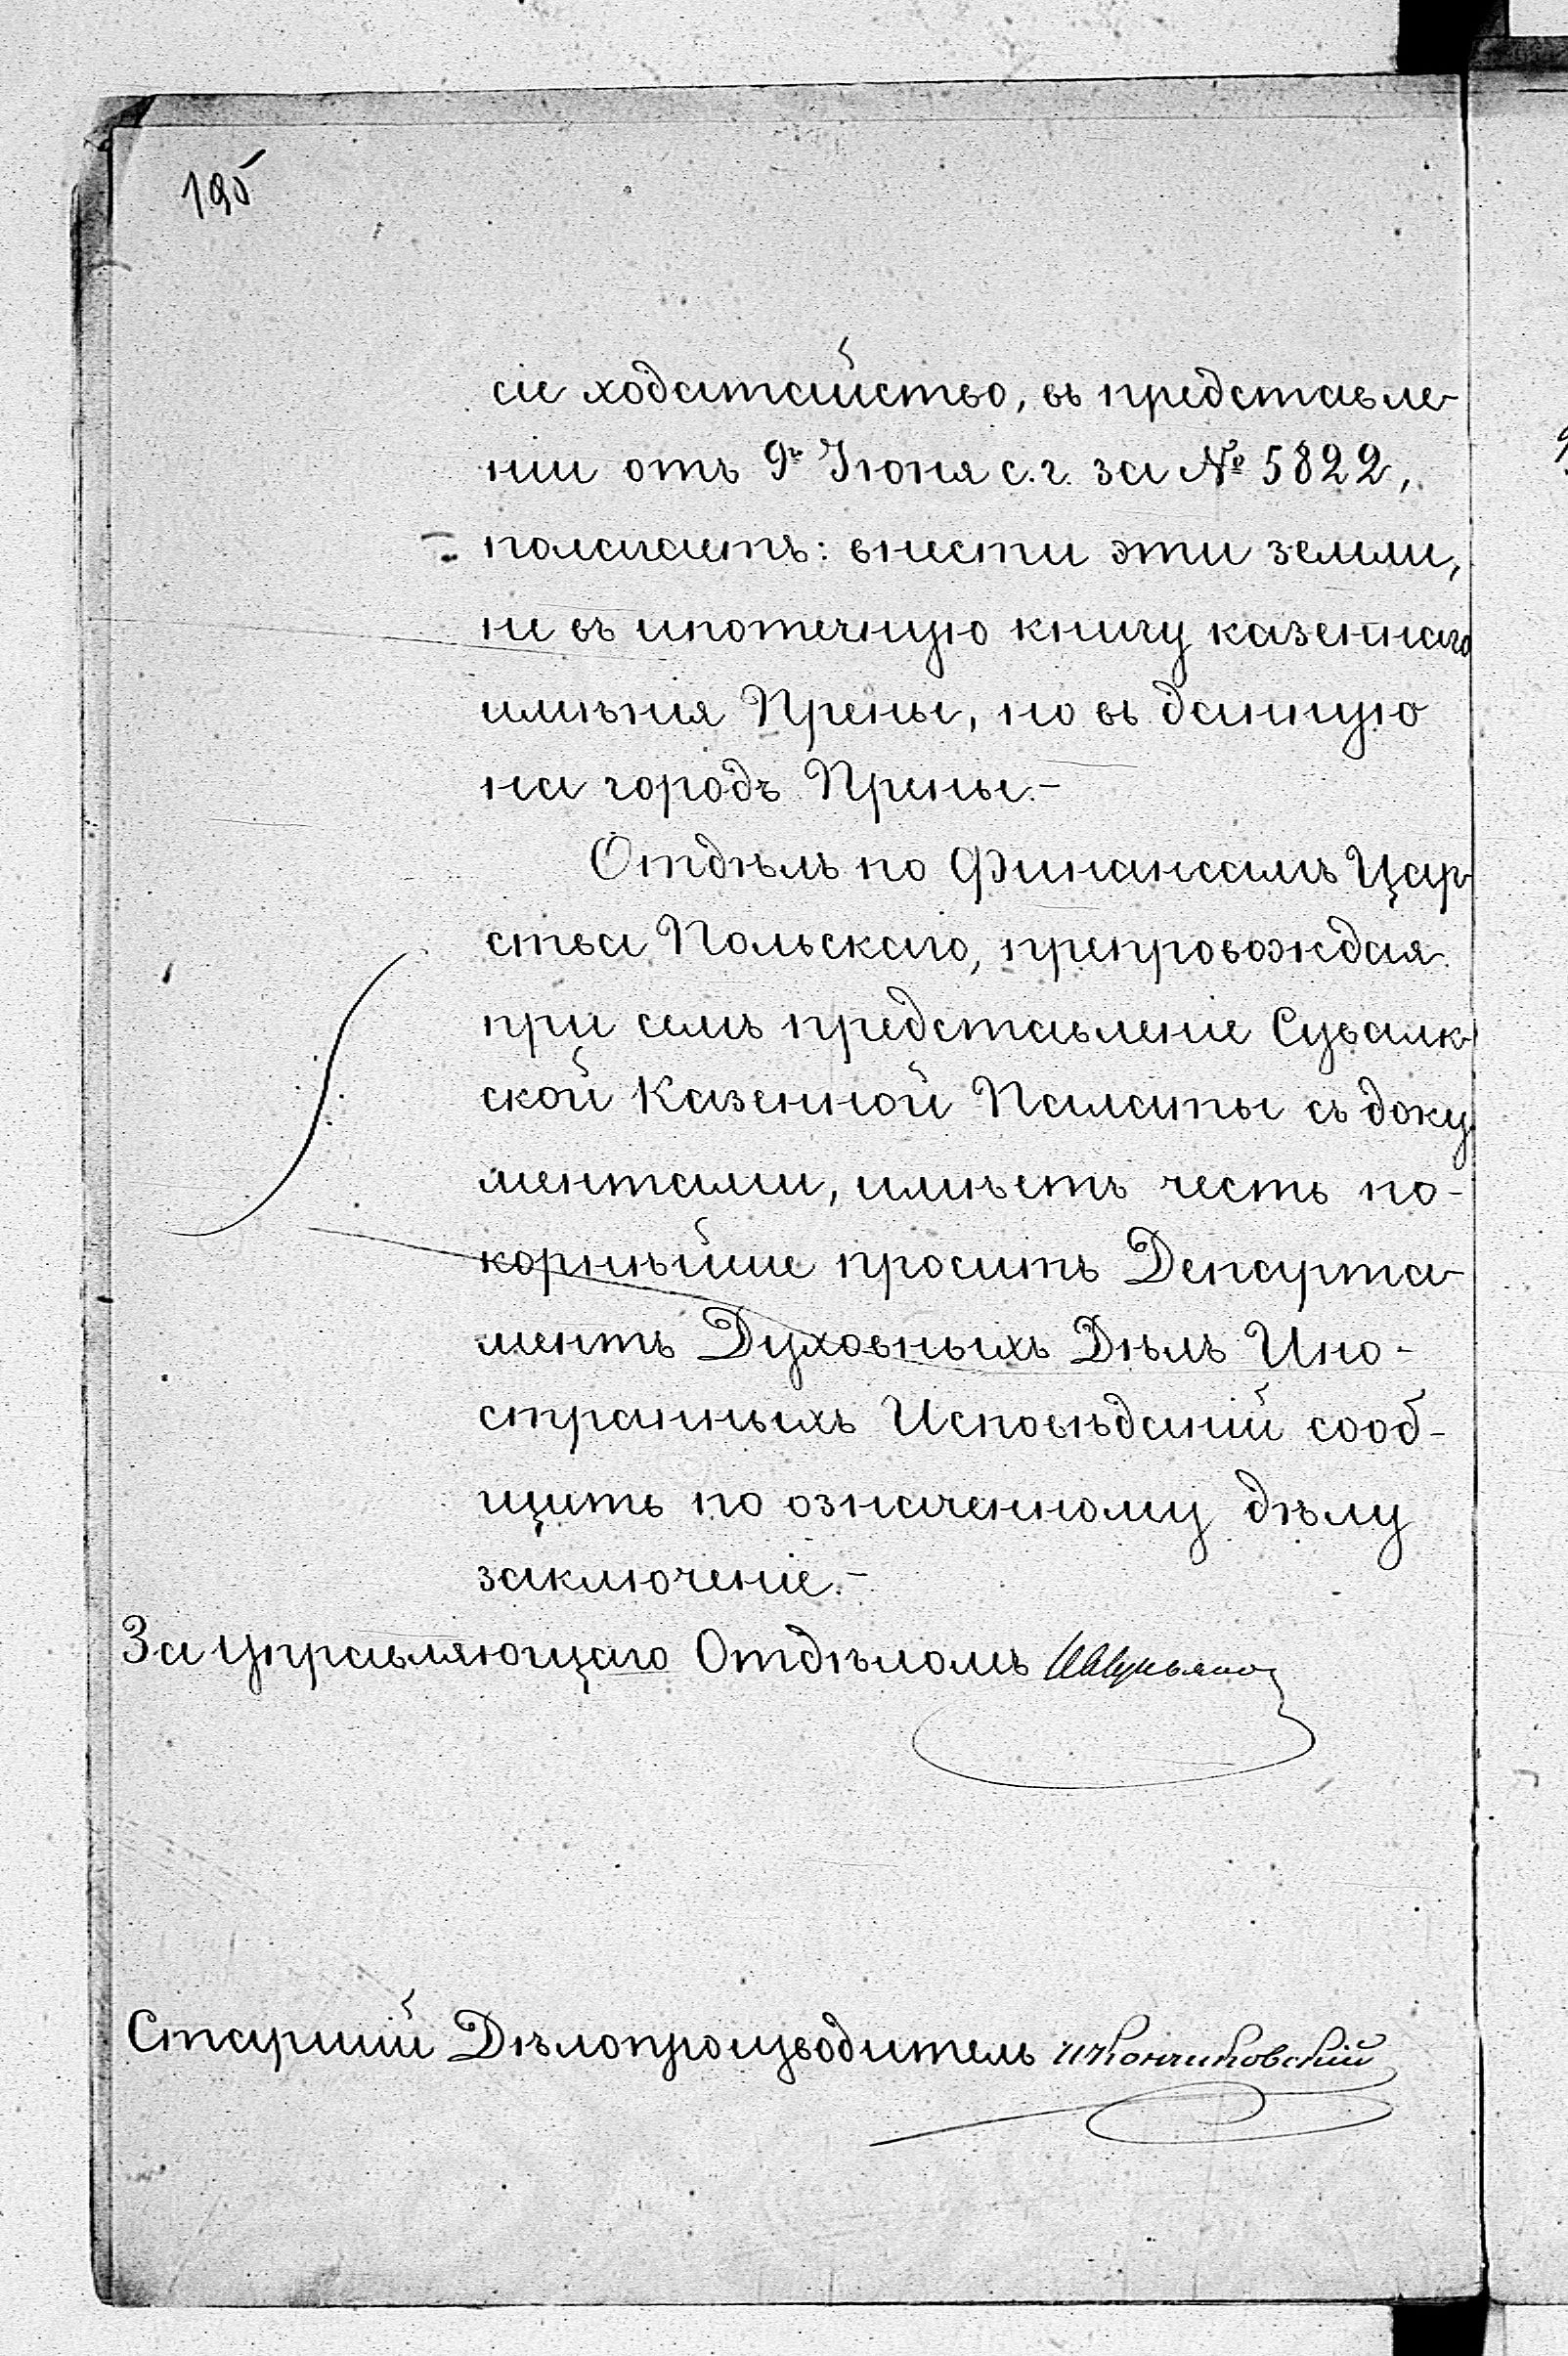 195
сіе ходатайство, въ представле-
ніи отъ 9го Іюня с.г. за № 5822,
полагаетъ: внести эти земли,
не въ ипотечную книгу казеннаго
имѣнія Прены, но въ данную
на городъ Прены.-
Отдѣлъ по Финансамъ Цар-
ства Польскаго, препровождая
при семъ представленіе Сувалк-
ской Казенной Палаты съ доку-
ментами, имѣетъ честь по-
корнѣйше просить Департа-
ментъ Духовныхъ Дѣлъ Ино-
странныхъ Исповѣданій сооб-
щить по означенному дѣлу
заключеніе.-
За Управляющаго Отдѣломъ
Старшій Дѣлопроизводитель